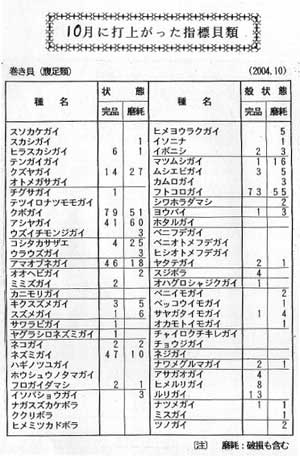 10月に打上がった指標貝類
巻き貝（腹足類） （2004.10）
種 名 状 態 完品 磨耗
スソカケガイ
スカシガイ 1
ヒラスカシガイ 6 1
テンガイガイ
クズヤガイ 14 27
オトメガサガイ
チグサガイ 1
テツイロナツモモガイ
クボガイ 79 51
アシヤガイ 41 60
ウズイチモンジガイ 3
コシタカサザエ 4 25
ウラウズガイ 3
アマオブネガイ 46 18
オオヘビガイ 2
ミミズガイ 2
カニモリガイ
キクスズメガイ 3 5
スズメガイ 1 6
サワラビガイ 1
ヤゲラシロネズミガイ 1
ネコガイ 2 2
ネズミガイ 47 10
ハギノツユガイ
ホウシュウノタマガイ
フロガイダマシ 2 1
イソバショウガイ 3
ナガスズカケボラ
ククリボラ
ヒメミツカドボラ
種 名 殻 状 態 完品 磨耗
ヒメヨウラクガイ 5
イソニナ 1
イボニシ 2 3
マツムシガイ 1 16
ムシエビガイ 3 5
カムロガイ 3
フトコロガイ 73 55
シワホラダマシ 2
ヨウバイ 1 3
ホタルガイ
ベニフデガイ
ベニオトメフデガイ
ヒシオトメフデガイ
ヤタテガイ 2 1
スジボラ 4
オハグロシャジクガイ 1
ベニイモガイ 2
ベッコウイモガイ 1
サヤガタイモガイ 1 4
オカモトイモガイ 1
チャイロクチキレガイ
チョウジガイ
ネジガイ
ナワメグルマガイ 2 1
アサガオガイ 4
ヒメルリガイ 8
ルリガイ 13
ナツメガイ 1 1
ミスガイ 1
ツノガイ 2
［注］ 磨耗：破損も含む